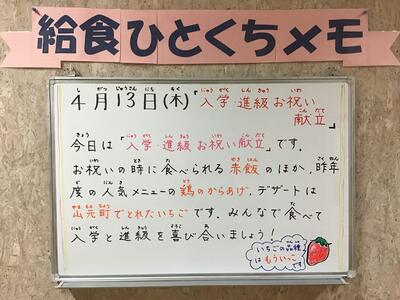 給食ひとくちメモ
4月13日(木)「入学・進級お祝い
献立」
今日は「入学・進級お祝い献立」です。
お祝いの時に食べられる赤飯のほか、昨年
度の人気メニューの鶏のからあげ、デザートは
山元町でとれたいちごです。みんなで食べて
入学と進級を喜び合いましょう！
いちごの品種
はもういっこ
です